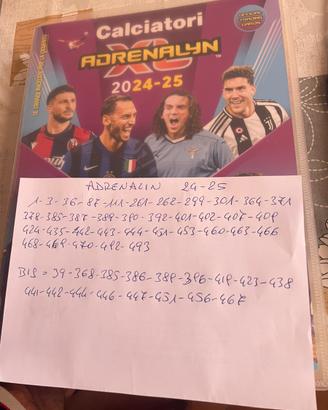 Calciatori
ADRENALYN
XL
™
2024-25
ADRENALIN 24-25
1-3-36-87-111-201-262-299-301-364-371
378-385-387-389-390-392-401-402-407-409
424-435-442-443-444-451-453-460-463-466
468-469-470-492-493
BIS = 39-368-385-386-389-396-419-423-438
441-442-444-446-447-451-456-467